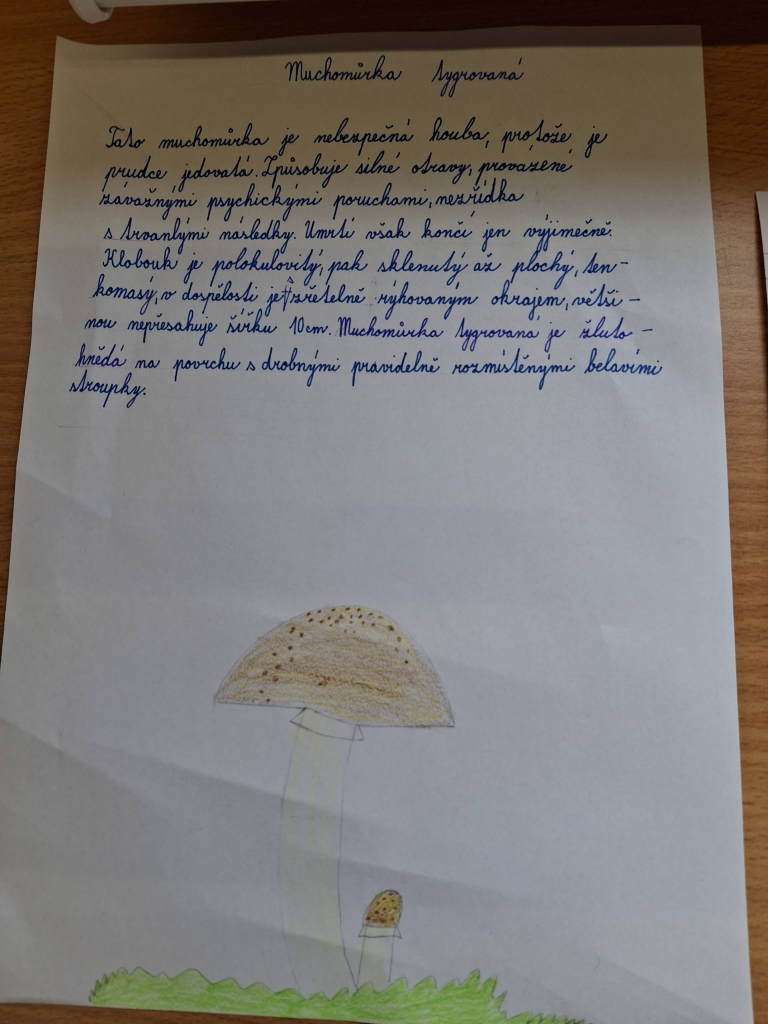 Muchomůrka tygrovaná
Tato muchomůrka je nebezpečná houba, protože je
prudce jedovatá. Způsobuje silné otravy, provázené
závažnými psychickými poruchami, nezřídka
s trvanlými následky. Umrtí však končí jen výjimečně.
Klobouk je polokulovitý, pak sklenutý až plochý, ten-
komasý, v dospělosti je s zřetelně rýhovaným okrajem, větši-
nou nepřesahuje šířku 10cm. Muchomůrka tygrovaná je žluto-
hnědá na povrchu s drobnými pravidelně rozmístěnými belavími
stroupky.